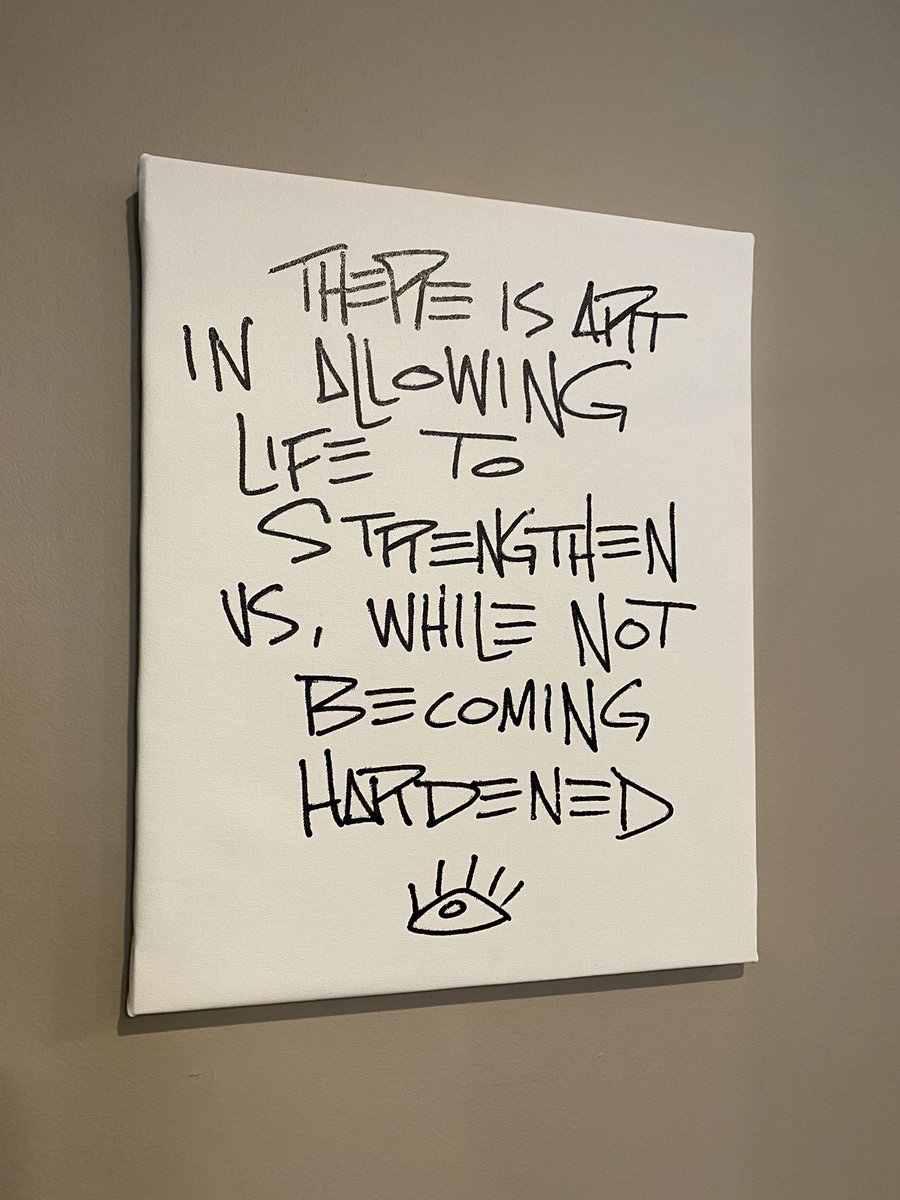 THERE IS ART
IN ALLOWING
LIFE TO
STRENGTHEN
US, WHILE NOT
BECOMING
HARDENED